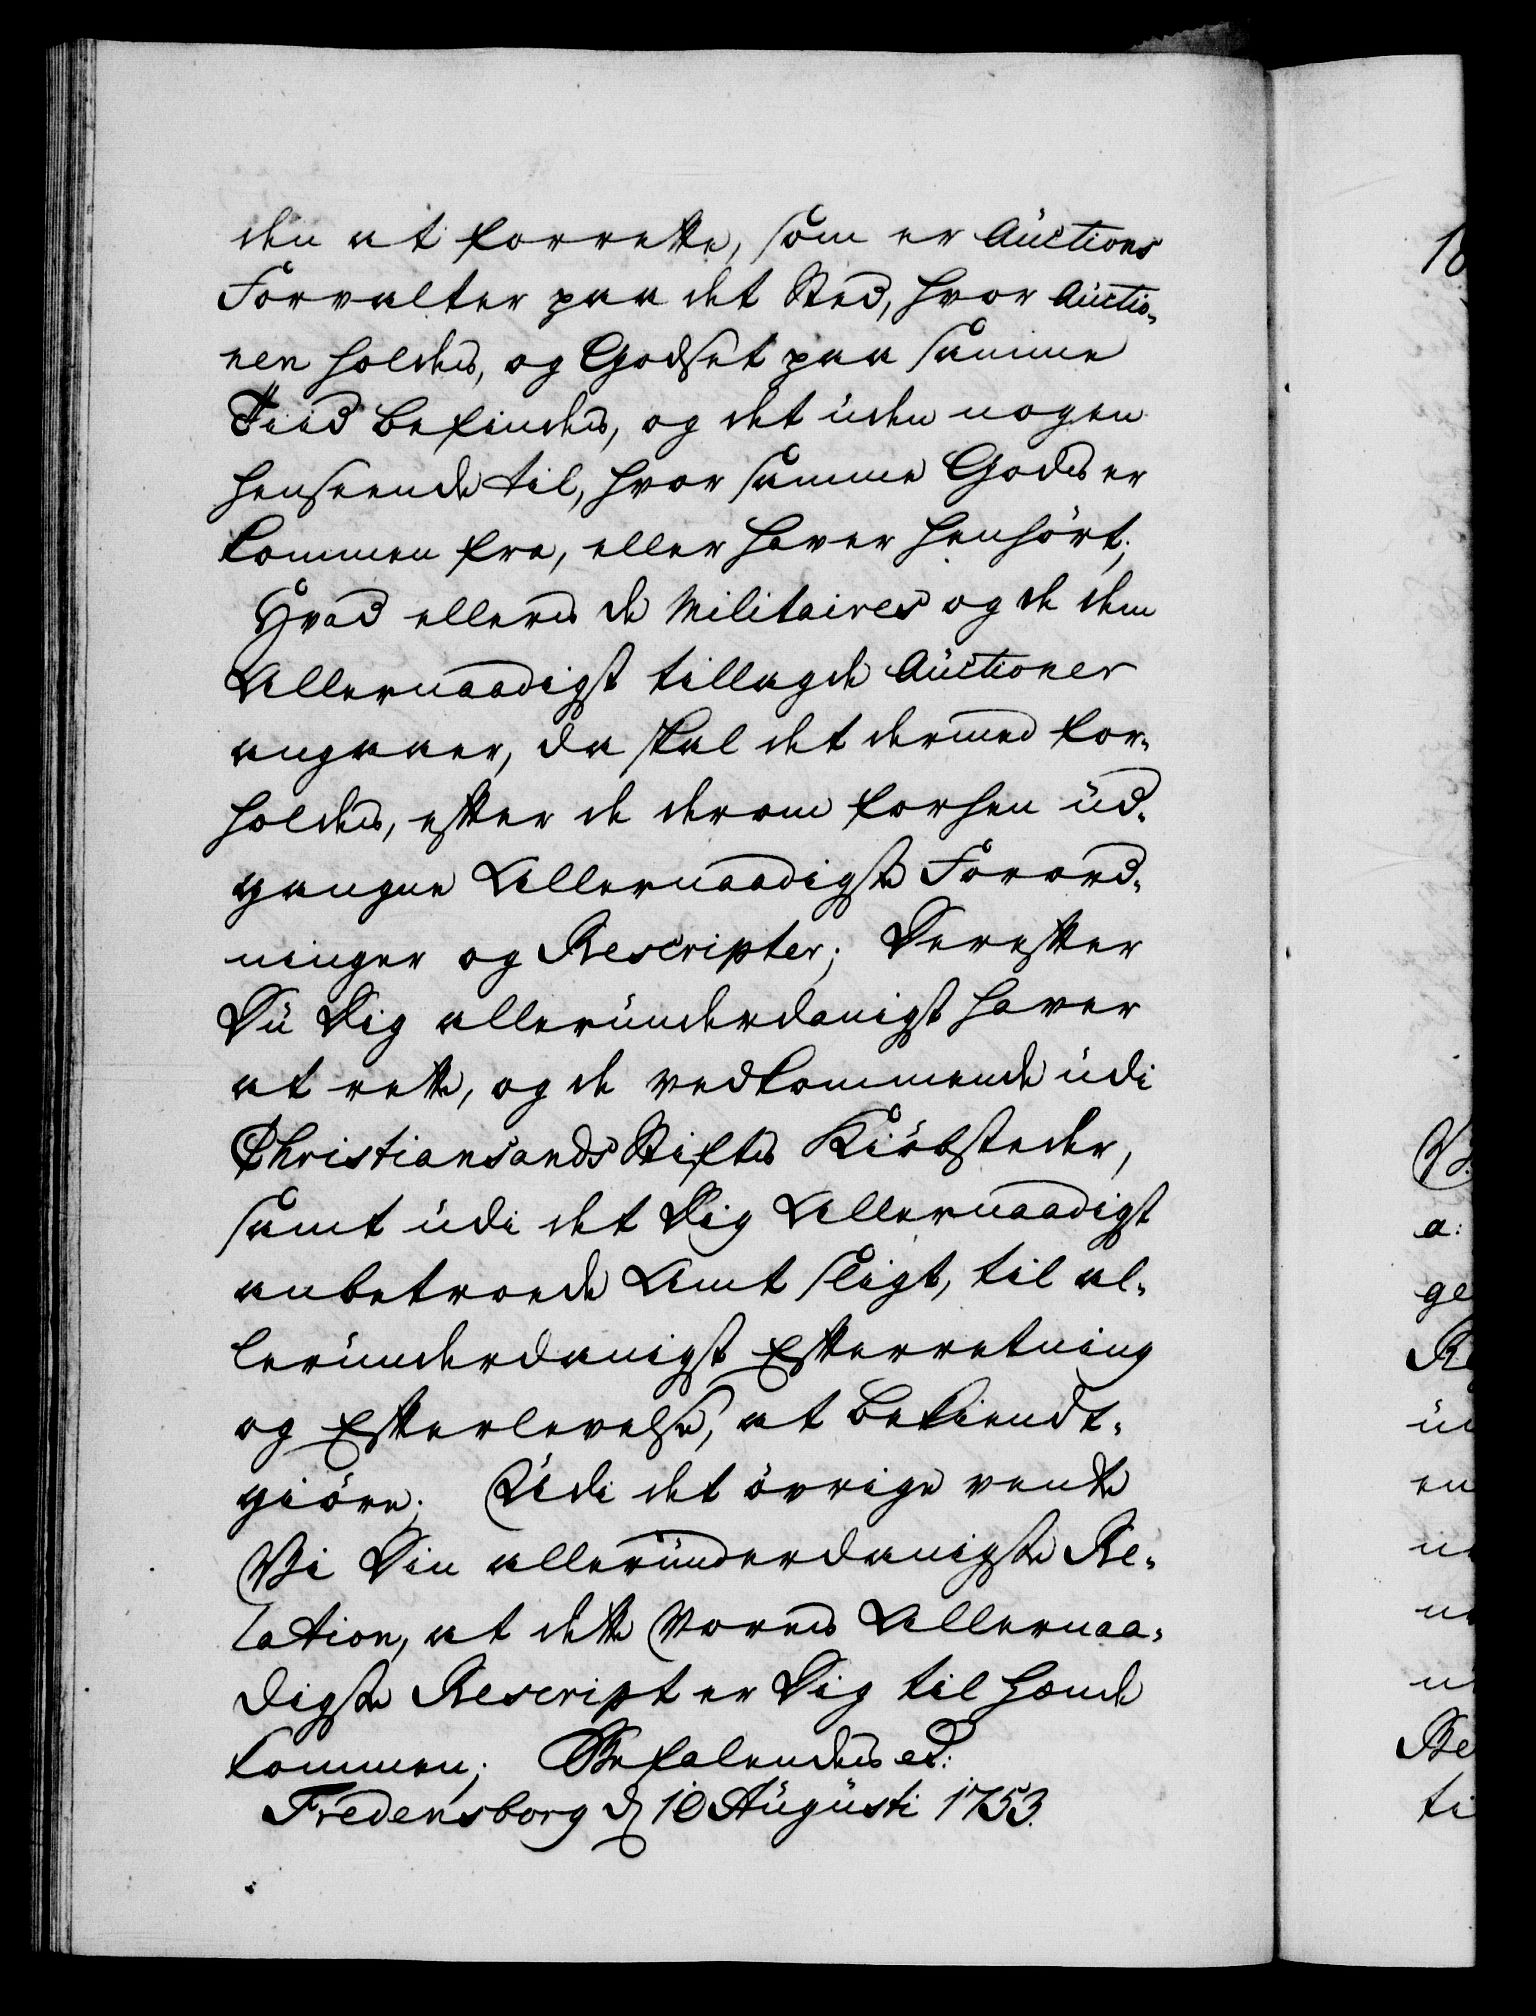 den at forrette, som er Auctions
Forvalter paa det Sted, hvor Auctio-
nen holdes, og Godset paa samme
Tiid befindes, og det uden nogen
henseende til, hvor samme Gods er
kommen fra, eller haver henhört;
Hvad ellers de Militaires og de dem
Allernaadigst tillagde Auctioner
angaaer, da skal det dermed for-
holdes, efter de derom forhen ud-
gangne Allernaadigste Forord-
ninger og Rescripter; Derefter
Du Dig allerunderdanigst haver
at rette, og de vedkommende udi
Christiansands Stiftes Kiöbsteder,
samt udi det Dig Allernaadigst
anbetroede Amt sligt, til al-
lerunderdanigst Efterretning
og Efterlevelse, at bekiendt-
giöre. Udi det övrige vente
Vi Din allerunderdanigste Re-
lation, at dette Vores Allernaa-
digste Rescript er Dig til hænde
kommen; Befalendes etc:
Fredensborg d 10 Augusti 1753.